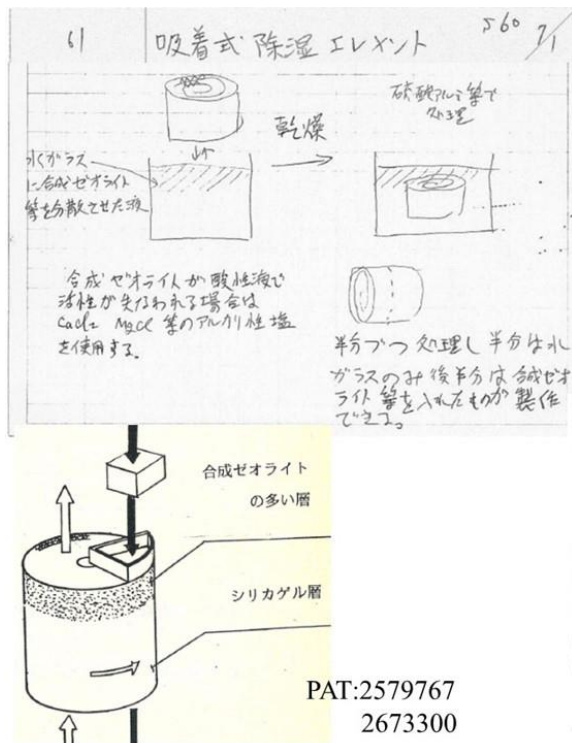 61 吸着式除湿エレメント S60 7/1
水ガラス
に合成ゼオライト
等を分散させた液
乾燥
硫酸アルミ等で
処理
合成ゼオライトが酸性液で
活性が失なわれる場合は
CaCl₂ MgCl 等のアルカリ性塩
を使用する。
半分づつ処理し半分は水
ガラスのみ後半分は合成ゼオ
ライト等を入れたものが製作
できる。
合成ゼオライト
の多い層
シリカゲル層
PAT:2579767
2673300